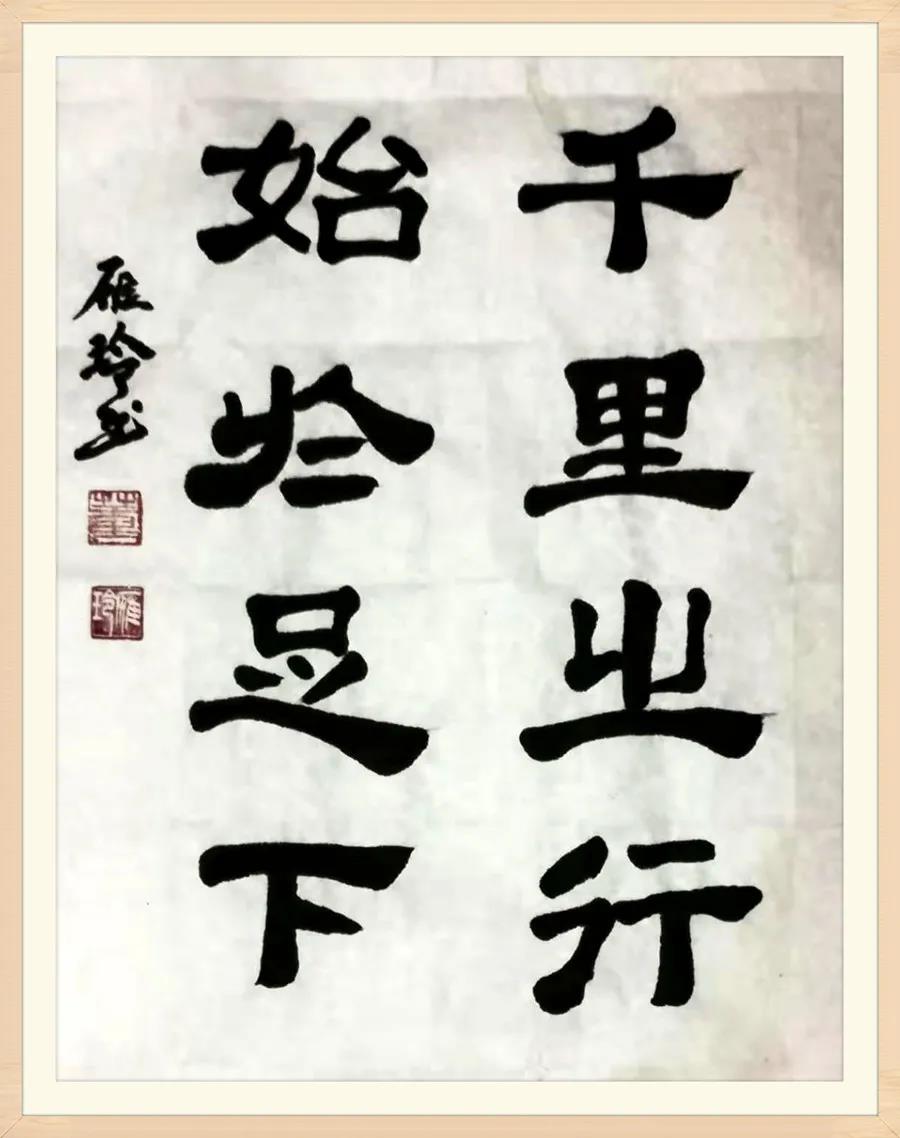 千里之行
始於足下
雁玲书
董
雁玲